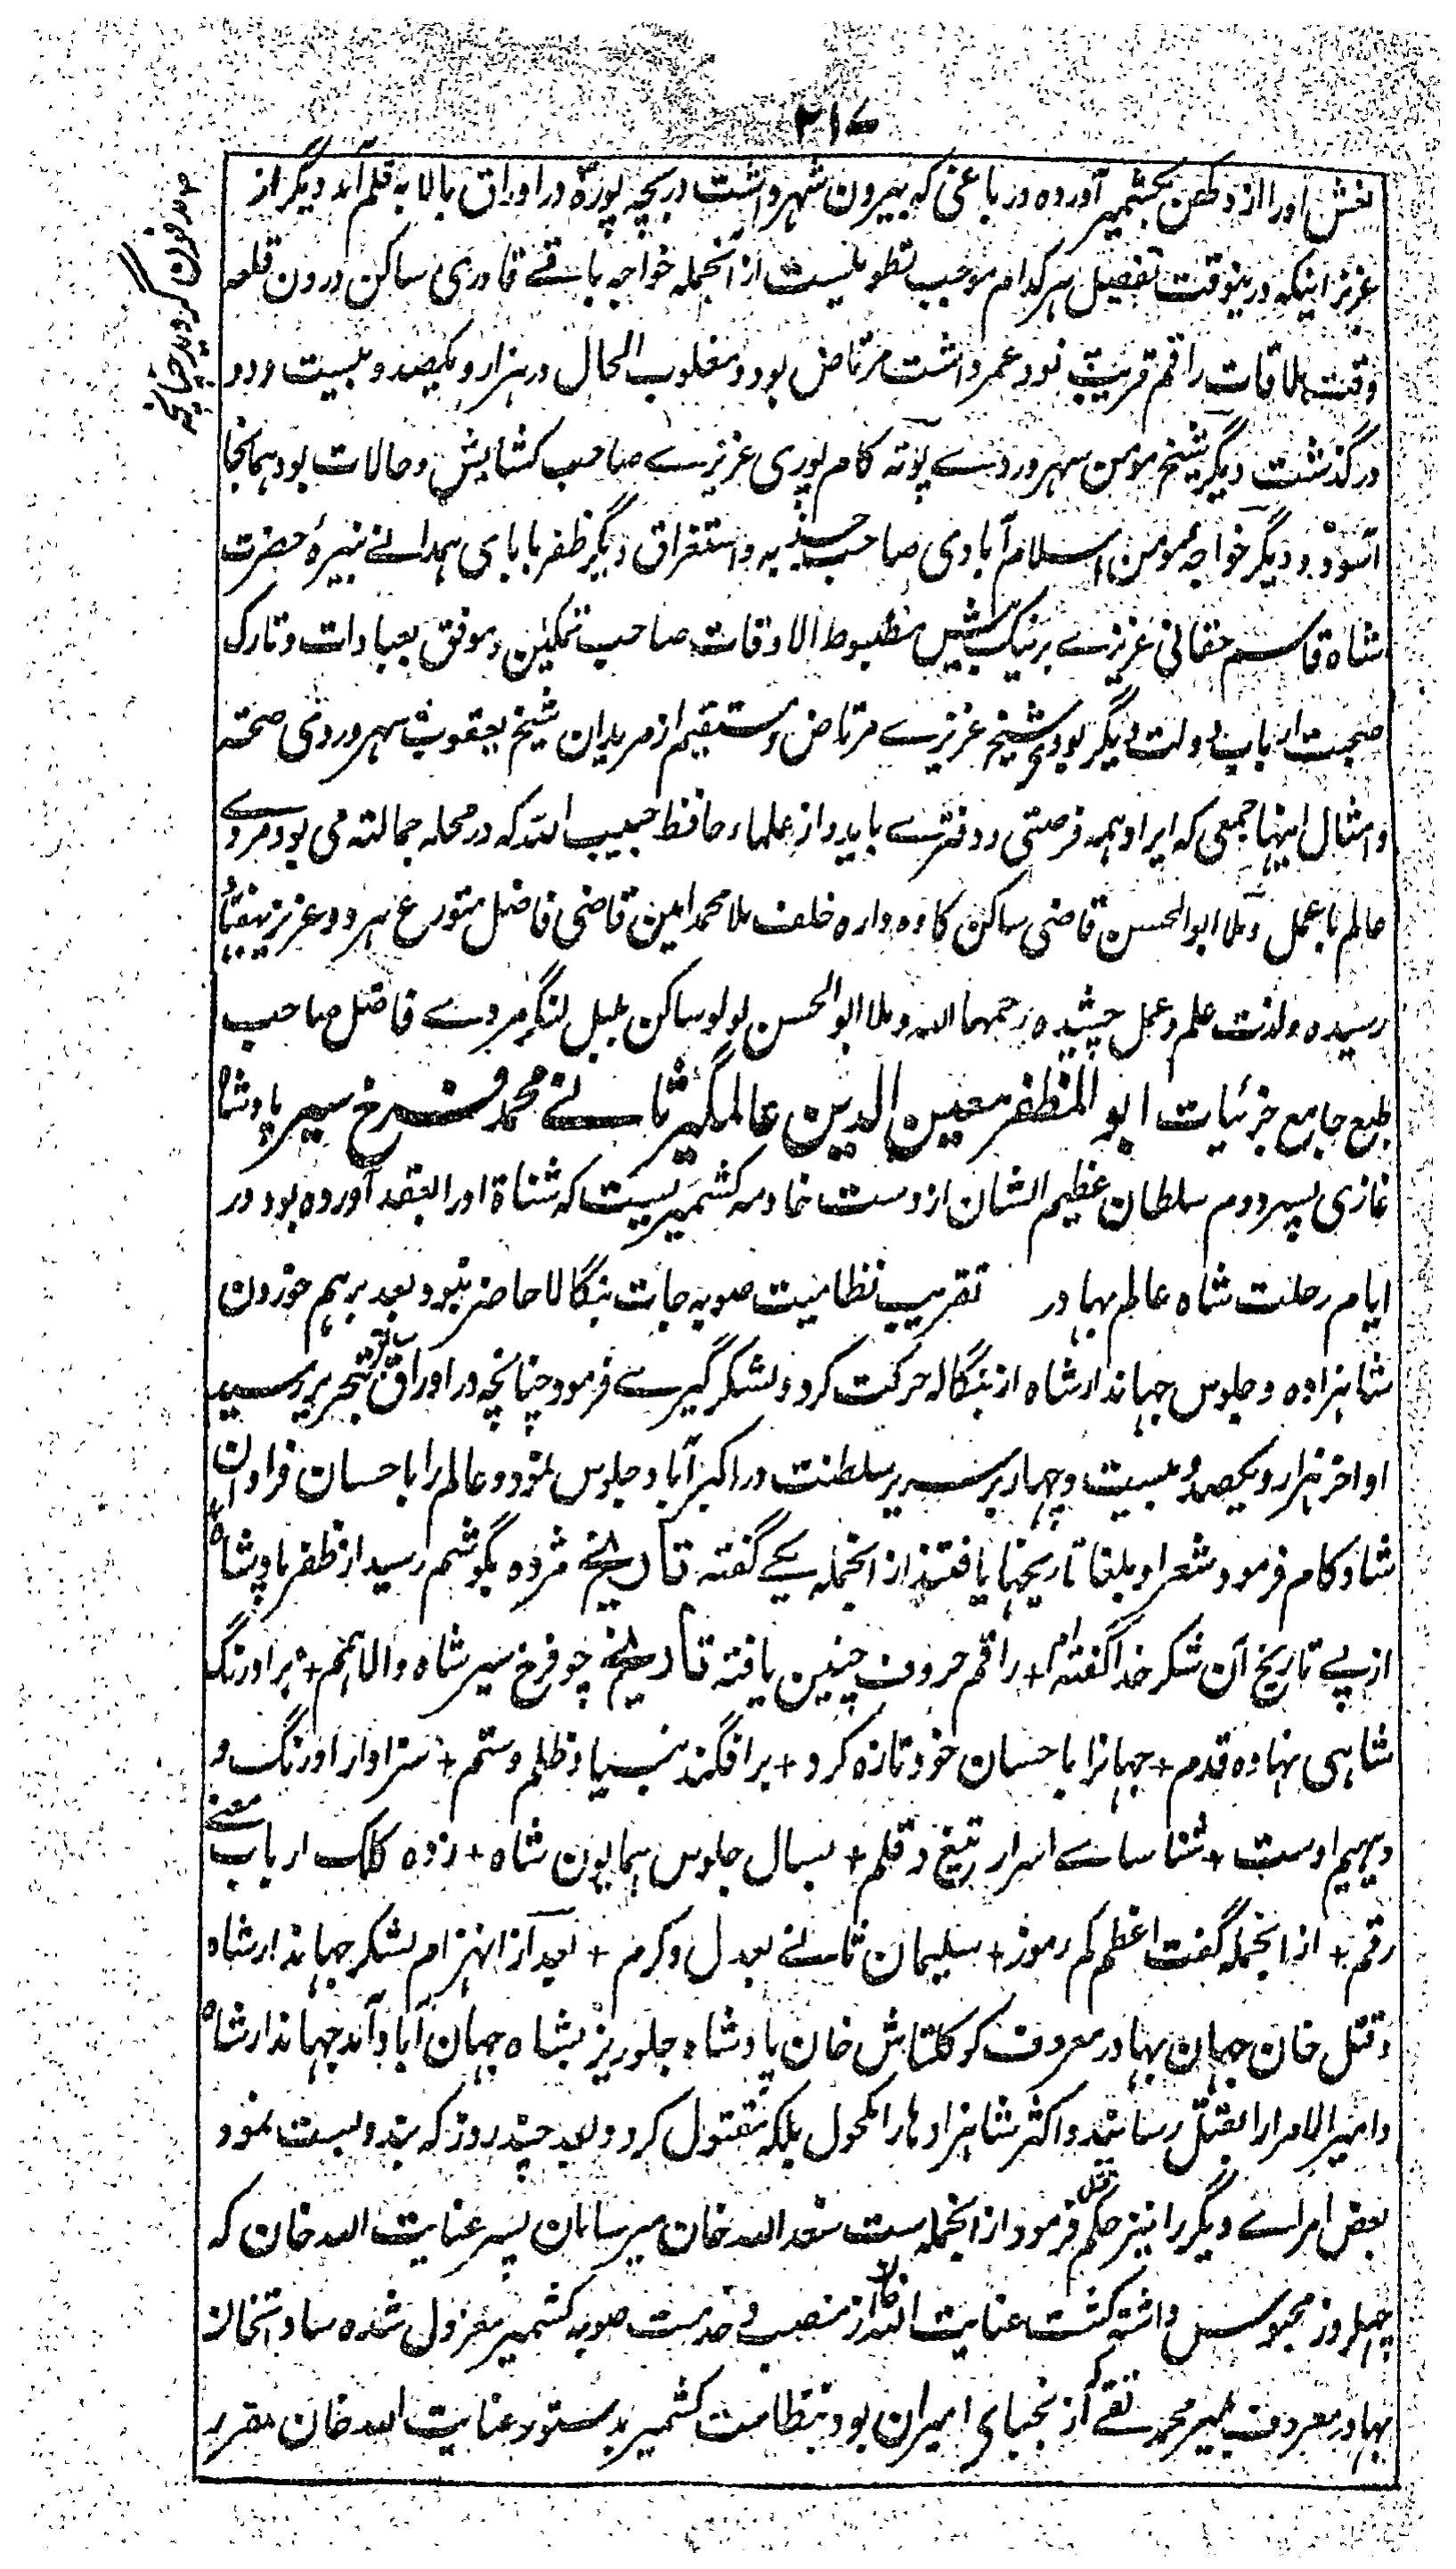 ۲۱۷
نعش اورا از دکهن بکشمیر آورده در باغی که بیرون شهر داشت دربچه پوره در اوراق بالا به قلم آمد دیگر از
مدفون گردید چنانچه
عزیز اینکه درینوقت تفصیل هر کدام موجب تطویلیست از انجمله خواجه باقے قادری ساکن درون قلعه
وقت ملاقات راقم قریب نود عمر داشت مرتاض بود و مغلوب الحال در هزار و یکصد و بیست و دو
درگذشت دیگر شیخ مومن سهروردے پوته کام پوری عزیزے صاحب کشایش و حالات بود همانجا
آسود و دیگر خواجه مومن اسلام آبادی صاحب جذبه و استغراق دیگر ظفر بابای همدانے نبیرهٔ حضرت
شاه قاسم حقانی عزیزے بر نیک مضبوط الاوقات صاحب تمکین و موفق بعبادات و تارک
صحبت ارباب دولت دیگر بودی شیخ عزیزے مرتاض و مستقیم از مریدان شیخ یعقوب سهروردی
و امثال اینها جمعی که ایراد همه فرصتی و دفترے باید و از علماء حافظ حبیب الله که در محله جمالته می بود مردے
عالم با عمل و ملا ابوالحسن قاضی ساکن کاوه داره خلف ملا محمد امین قاضی فاضل متورع هر دو عزیز بهفتاد
رسیده و لذت علم و عمل چشیده رحمهما الله و ملا ابوالحسن لولو ساکن بلبل لنگر مردے فاضل صاحب
طبع جامع جزئیات ابو المظفر معین الدین عالمگیر ثانے محمد فرخ سیر بادشاه
غازی پسر دوم سلطان عظیم الشان از دست خادمه کشمیریست که شناة اورا بعقد آورده بود در
ایام رحلت شاه عالم بهادر تقریب نظامیت صوبه جات بنگالا حاضر نبود بعد برهم خوردن
شاهزاده و جلوس جهاندار شاه از بنگاله حرکت کرد و لشکر گیرے فرمود چنانچه در اوراق سابق بتحریر رسید
اواخر هزار و یکصد و بیست و چهار بر سریر سلطنت در اکبرآباد جلوس نمود و عالم را باحسان فراوان
شاد کام فرمود شعرا و بلغا تاریخها یافتند از انجمله یکے گفته تاریخ مژده بگوشم رسید از ظفر بادشاه
از پے تاریخ آن شکر خدا گفته ام + راقم حروف چنین یافته تاریخ چو فرخ سیر شاه والا همم + بر اورنگ
شاهی نهاده قدم + جهانرا باحسان خود تازه کرد + برافگند بنیاد ظلم و ستم + سزاوار اورنگ و
دیهیم اوست + شناساے اسرار تیغ و قلم + بسال جلوس همایون شاه + زده کلک ارباب معنے
رقم + از انجمله گفت اعظم کم رموز + سلیمان ثانے بعدل و کرم + بعد از انهزام لشکر جهاندار شاه
و قتل خان جهان بهادر معروف کوکلتاش خان بادشاه جلوریز بشاه جهان آباد آمد جهاندار شاه
و امیرالامرا را بقتل رسانید و اکثر شاهزادها را مکحول بلکه مقتول کرد و بعد چند روز که بندوبست نمود
بعض امراے دیگر را نیز حکم قتل فرمود از انجمله ست سعد الله خان میرسامان پسر عنایت الله خان که
چهل روز محبوس داشته کشت عنایت الله خان از منصب و خدمت صوبه کشمیر معزول شده سادتخان
بهادر معروف بمیر محمد تقے که از نجبای ایران بود بنظامت کشمیر بدستور عنایت الله خان مقرر